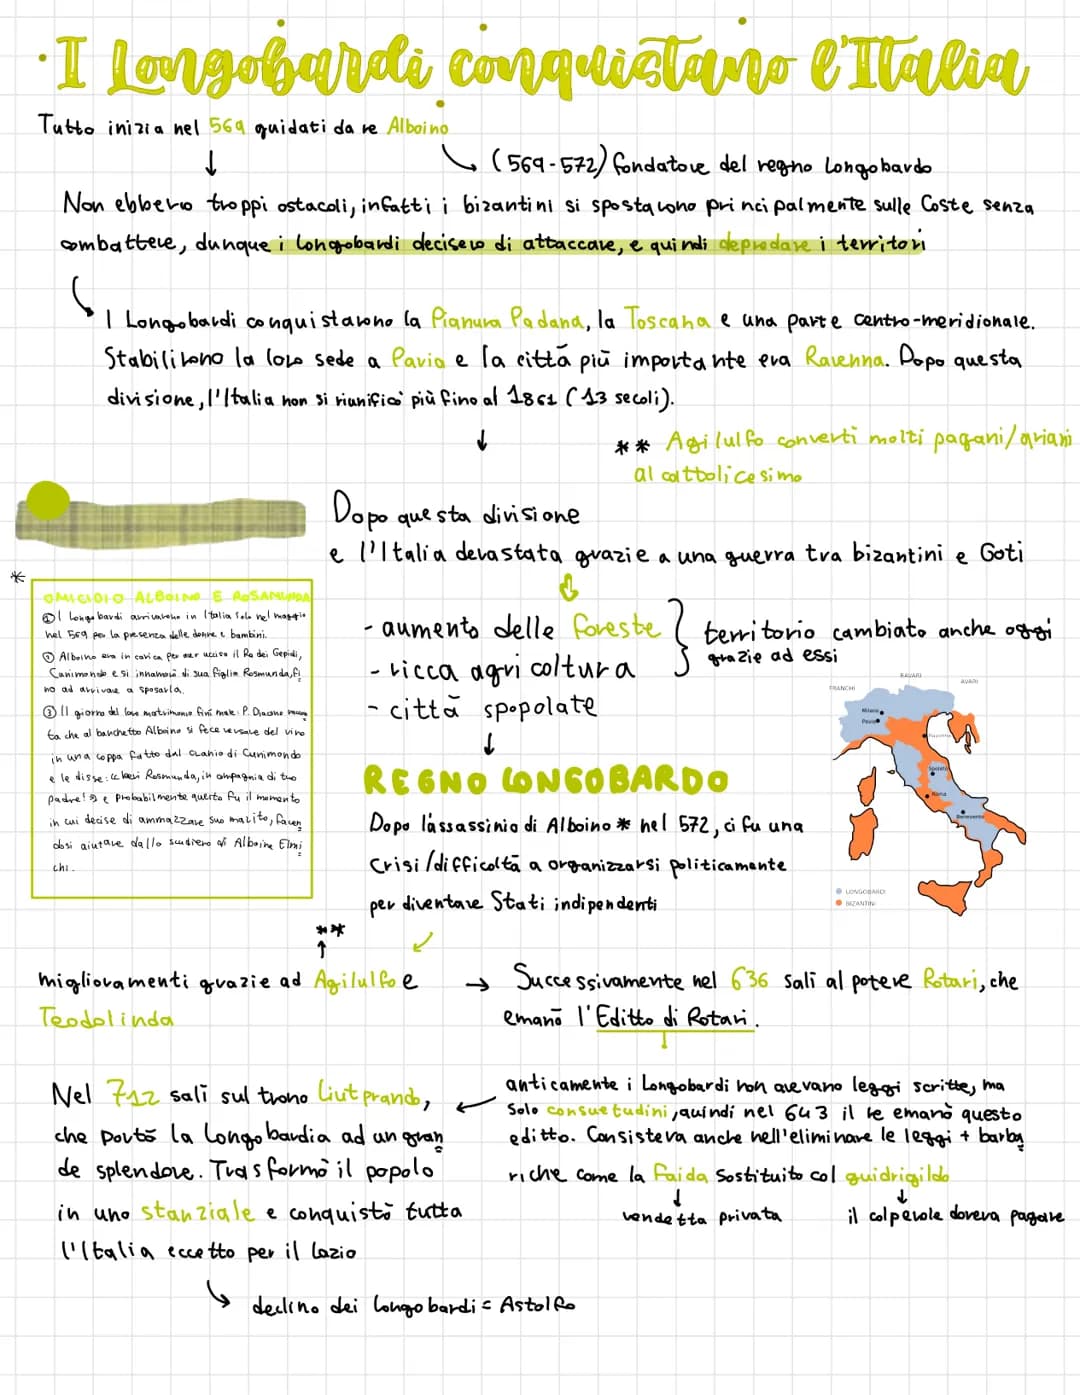 · I Longobardi conquistano l'Italia
Tutto inizia nel 569 guidati da re Alboino
(569-572) fondatore del regno Longobardo
Non ebbero troppi ostacoli, infatti i bizantini si spostarono principalmente sulle Coste senza
combattere, dunque i longobardi decisero di attaccare, e quindi depredare i territori
I Longobardi conquistarono la Pianura Padana, la Toscana e una parte centro-meridionale.
Stabilirono la loro sede a Pavia e la città più importante era Ravenna. Dopo questa
divisione, l'Italia non si riunificò più fino al 1861 (13 secoli).
** Agilulfo convertì molti pagani/ariani
al cattolicesimo
Dopo questa divisione
e l'Italia devastata grazie a una guerra tra bizantini e Goti
- aumento delle foreste
- ricca agricoltura
- città spopolate
territorio cambiato anche oggi
grazie ad essi
*
OMICIDIO ALBOINO E ROSAMUNDA
① I longobardi arrivarono in Italia solo nel maggio
nel 569 per la presenza delle donne e bambini.
② Alboino era in carica per aver ucciso il Re dei Gepidi,
Cunimondo e si innamorò di sua figlia Rosmunda, fi
no ad arrivare a sposarla.
③ Il giorno del loro matrimonio finì male: P. Diacono raccon
ta che al banchetto Alboino si fece versare del vino
in una coppa fatto dal cranio di Cunimondo
e le disse: << bevi Rosmunda, in compagnia di tuo
padre! >> e probabilmente questo fu il momento
in cui decise di ammazzare suo marito, facen
dosi aiutare dallo scudiero di Alboino Elmi
chi.
FRANCHI
BAVARI
AVARI
Milano
Pavia
Spoleto
Roma
Benevento
LONGOBARDI
BIZANTINI
REGNO LONGOBARDO
Dopo l'assassinio di Alboino * nel 572, ci fu una
Crisi/difficoltà a organizzarsi politicamente
per diventare Stati indipendenti
**
miglioramenti grazie ad Agilulfo e
Teodolinda
→ Successivamente nel 636 salì al potere Rotari, che
emanò l'Editto di Rotari.
anticamente i Longobardi non avevano leggi scritte, ma
Solo consuetudini, quindi nel 643 il re emanò questo
editto. Consisteva anche nell'eliminare le leggi + barba
riche come la faida Sostituito col guidrigildo
vendetta privata
il colpevole doveva pagare
Nel 712 salì sul trono Liutprando,
che portò la Longobardia ad un gran
de splendore. Trasformò il popolo
in uno stanziale e conquistò tutta
l'Italia eccetto per il lazio
declino dei longobardi = Astolfo